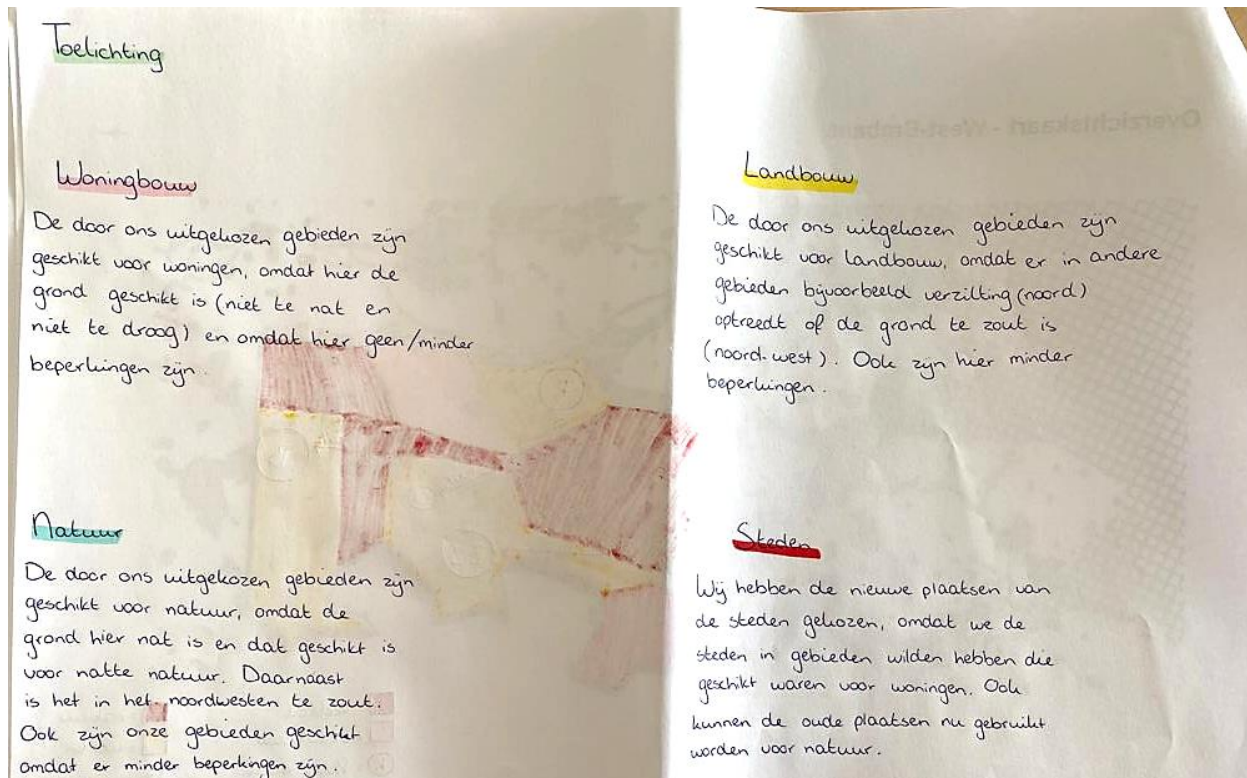 Toelichting
Woningbouw
De door ons uitgekozen gebieden zijn
geschikt voor woningen, omdat hier de
grond geschikt is (niet te nat en
niet te droog) en omdat hier geen/minder
beperkingen zijn.
Natuur
De door ons uitgekozen gebieden zijn
geschikt voor natuur, omdat de
grond hier nat is en dat geschikt is
voor natte natuur. Daarnaast
is het in het noordwesten te zout.
Ook zijn onze gebieden geschikt
omdat er minder beperkingen zijn.
Overzichtskaart - West-Brabant
Landbouw
De door ons uitgekozen gebieden zijn
geschikt voor landbouw, omdat er in andere
gebieden bijvoorbeeld verzilting (noord)
optreedt of de grond te zout is
(noord-west). Ook zijn hier minder
beperkingen.
Steden
Wij hebben de nieuwe plaatsen van
de steden gekozen, omdat we de
steden in gebieden wilden hebben die
geschikt waren voor woningen. Ook
kunnen de oude plaatsen nu gebruikt
worden voor natuur.